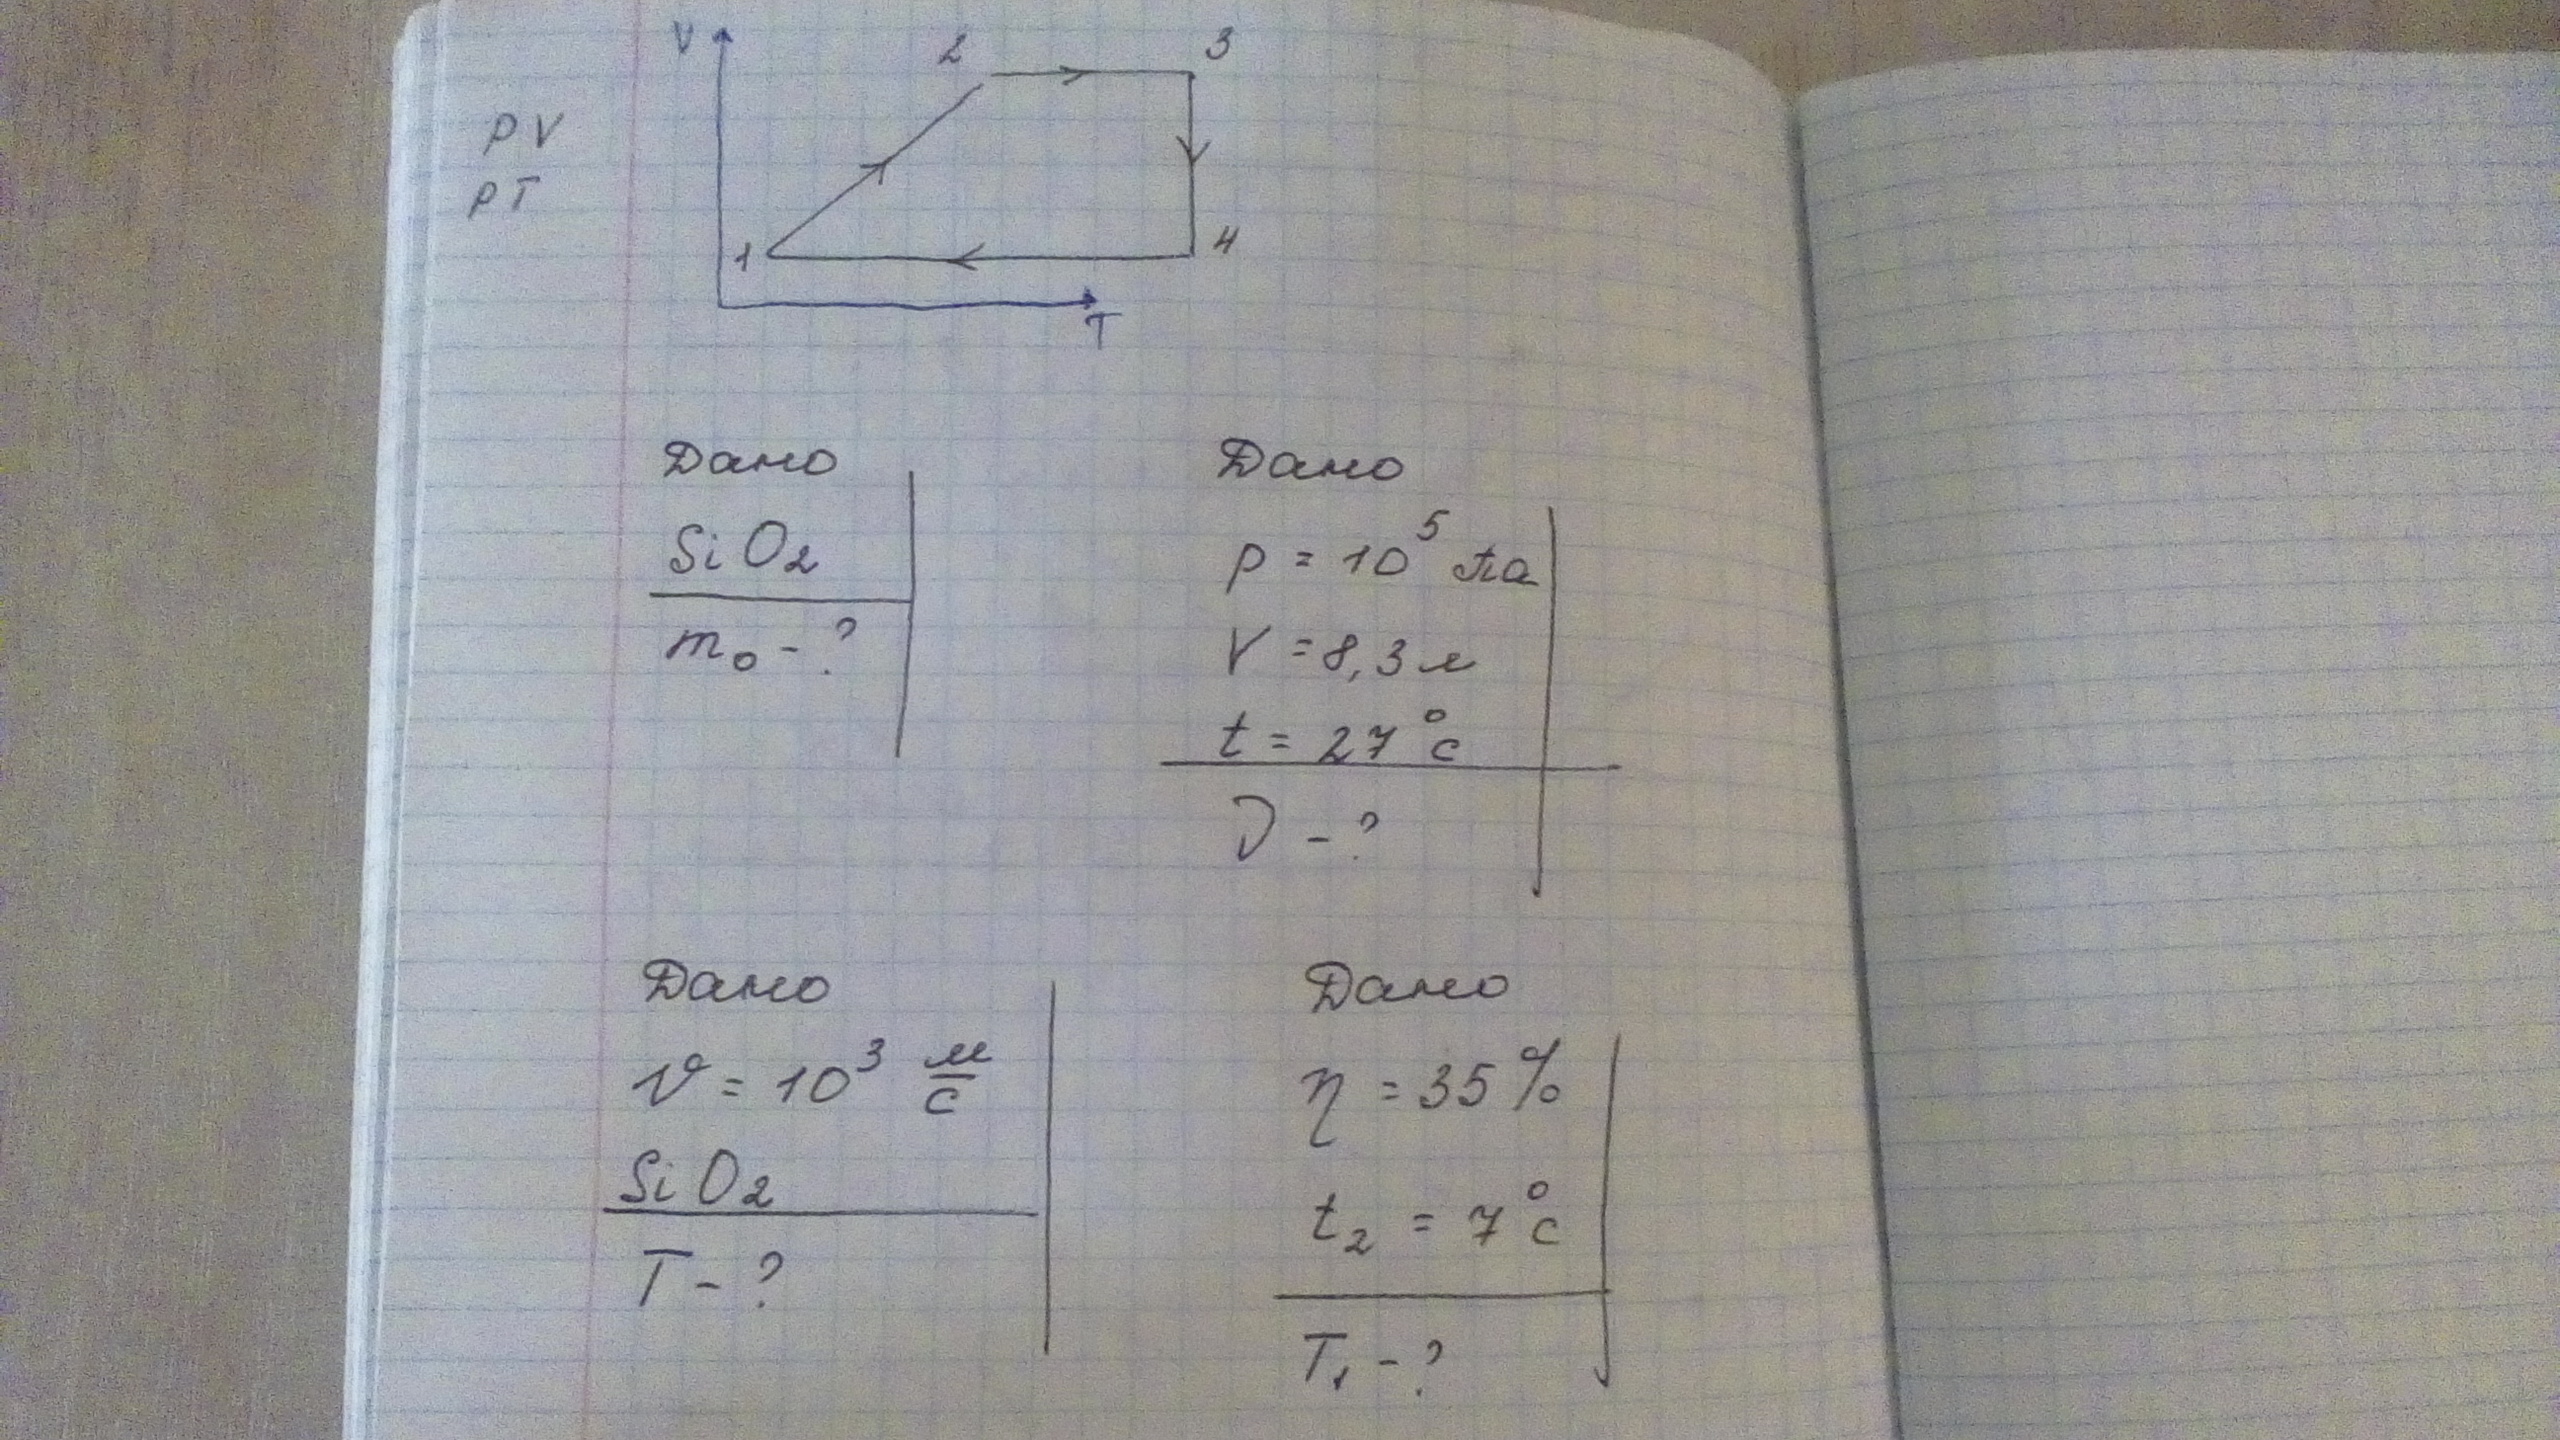 V
2
3
pV
pT
1
4
T
Дано
SiO₂
m₀ - ?
Дано
p = 10⁵ Па
V = 8,3 л
t = 27 °C
ν - ?
Дано
v = 10³ м/с
SiO₂
T - ?
Дано
η = 35 %
t₂ = 7 °C
T₁ - ?